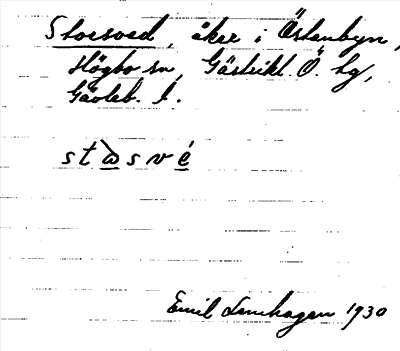 Storsved, åker i Östanbyn,
Högbo sn, Gästrikl. Ö. hg,
Gävleb. l.
stωsvé
Emil Lennhagen 1930